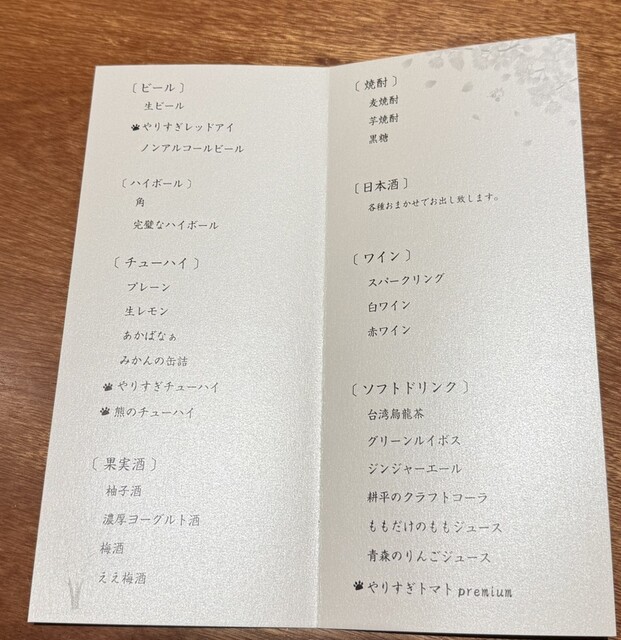 〔ビール〕
生ビール
やりすぎレッドアイ
ノンアルコールビール
〔ハイボール〕
角
完璧なハイボール
〔チューハイ〕
プレーン
生レモン
あかばなぁ
みかんの缶詰
やりすぎチューハイ
熊のチューハイ
〔果実酒〕
柚子酒
濃厚ヨーグルト酒
梅酒
ええ梅酒
〔焼酎〕
麦焼酎
芋焼酎
黒糖
〔日本酒〕
各種おまかせでお出し致します。
〔ワイン〕
スパークリング
白ワイン
赤ワイン
〔ソフトドリンク〕
台湾烏龍茶
グリーンルイボス
ジンジャーエール
耕平のクラフトコーラ
ももだけのももジュース
青森のりんごジュース
やりすぎトマトpremium